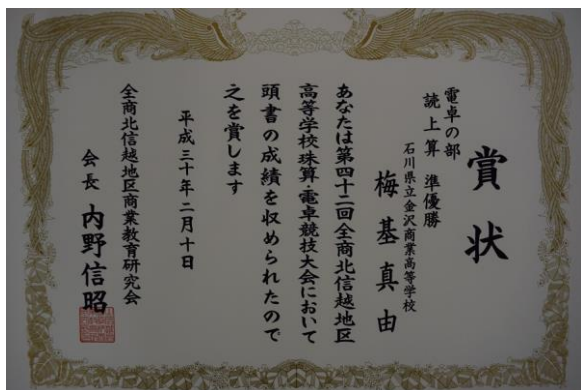 賞状
電卓の部
読上算 準優勝
石川県立金沢商業高等学校
梅基真由
あなたは第四十二回全商北信越地区
高等学校珠算・電卓競技大会において
頭書の成績を収められたので
之を賞します
平成三十年二月十日
全商北信越地区商業教育研究会
会長 内野信昭